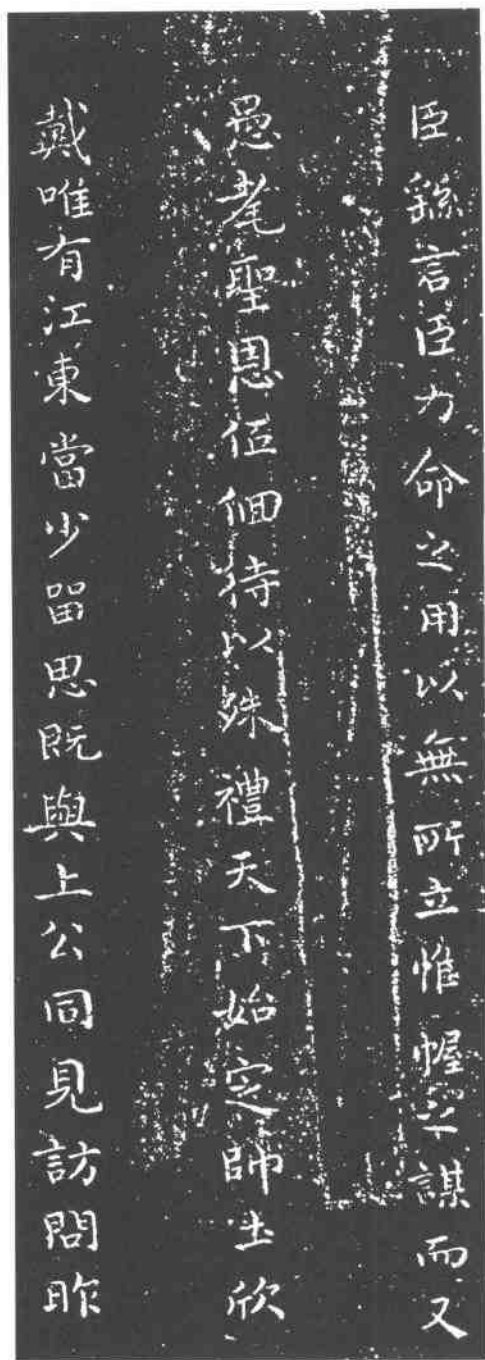 臣繇言臣力命之用以無所立惟幄之謀而又
愚耄聖恩伍佃待以殊禮天下始定師土欣
戴唯有江東當少留思既與上公同見訪問昨